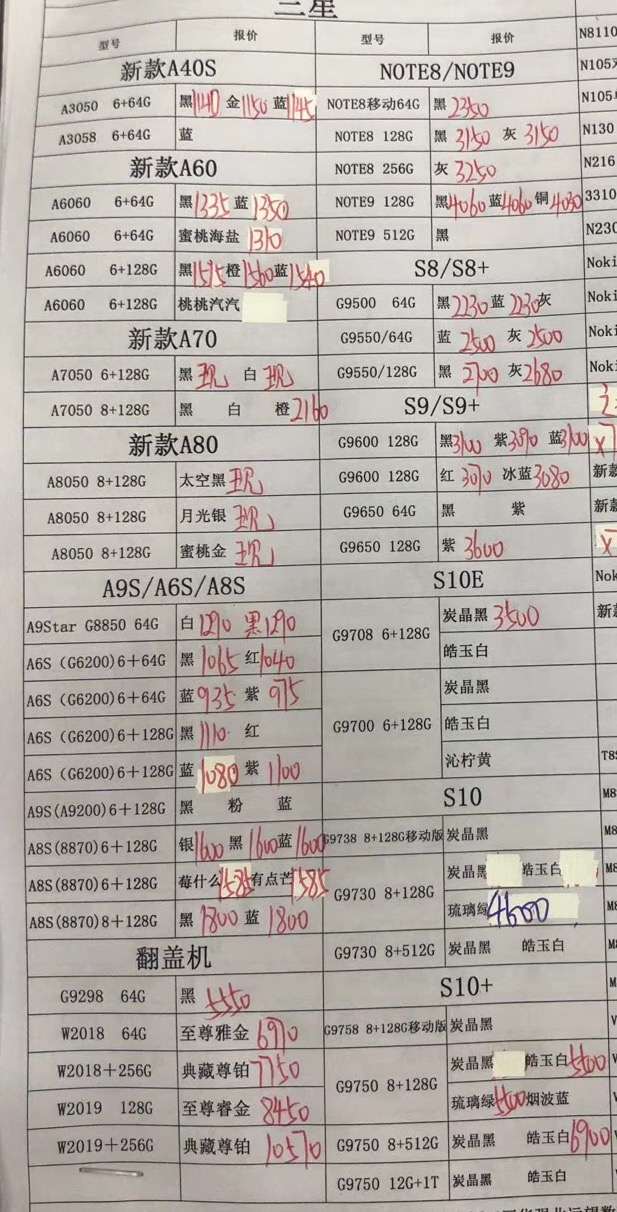 三星
型号 报价
新款A40S
A3050 6+64G 黑1140 金1150 蓝1145
A3058 6+64G 蓝
新款A60
A6060 6+64G 黑1335 蓝1350
A6060 6+64G 蜜桃海盐 1310
A6060 6+128G 黑1515 橙1560 蓝1540
A6060 6+128G 桃桃汽汽
新款A70
A7050 6+128G 黑 现 白 现
A7050 8+128G 黑 白 橙2160
新款A80
A8050 8+128G 太空黑 现
A8050 8+128G 月光银 现
A8050 8+128G 蜜桃金 现
A9S/A6S/A8S
A9Star G8850 64G 白1290 黑1290
A6S (G6200)6+64G 黑 1065 红1040
A6S (G6200)6+64G 蓝935 紫 975
A6S (G6200)6+128G 黑1110 红
A6S (G6200)6+128G 蓝1080 紫 1100
A9S(A9200)6+128G 黑 粉 蓝
A8S(8870)6+128G 银1600 黑 1600 蓝 1600
A8S(8870)6+128G 莓什么1585 有点芒1585
A8S(8870)8+128G 黑 1800 蓝 1800
翻盖机
G9298 64G 黑 5550
W2018 64G 至尊雅金 6970
W2018+256G 典藏尊铂7750
W2019 128G 至尊睿金 8450
W2019+256G 典藏尊铂 10570
型号 报价
NOTE8/NOTE9
NOTE8移动64G 黑2350
NOTE8 128G 黑 3150 灰 3150
NOTE8 256G 灰 3250
NOTE9 128G 黑4060 蓝4060 铜 4030
NOTE9 512G 黑
S8/S8+
G9500 64G 黑2230 蓝 2230 灰
G9550/64G 蓝 2500 灰 2500
G9550/128G 黑 2700 灰2680
S9/S9+
G9600 128G 黑3100 紫3090 蓝3100
G9600 128G 红 3070 冰蓝3080
G9650 64G 黑 紫
G9650 128G 紫 3600
S10E
G9708 6+128G 炭晶黑 3500
皓玉白
G9700 6+128G 炭晶黑
皓玉白
沁柠黄
S10
G9738 8+128G移动版 炭晶黑
G9730 8+128G 炭晶黑 皓玉白
琉璃绿4600
G9730 8+512G 炭晶黑 皓玉白
S10+
G9758 8+128G移动版 炭晶黑
G9750 8+128G 炭晶黑 皓玉白5500
琉璃绿5500 烟波蓝
G9750 8+512G 炭晶黑 皓玉白6900
G9750 12G+1T 炭晶黑 皓玉白
N8110
N105
N105
N130
N216
3310
N230
Noki
Noki
Noki
Noki
新款
新款
Nok
新
T8
M8
M8
M8
M8